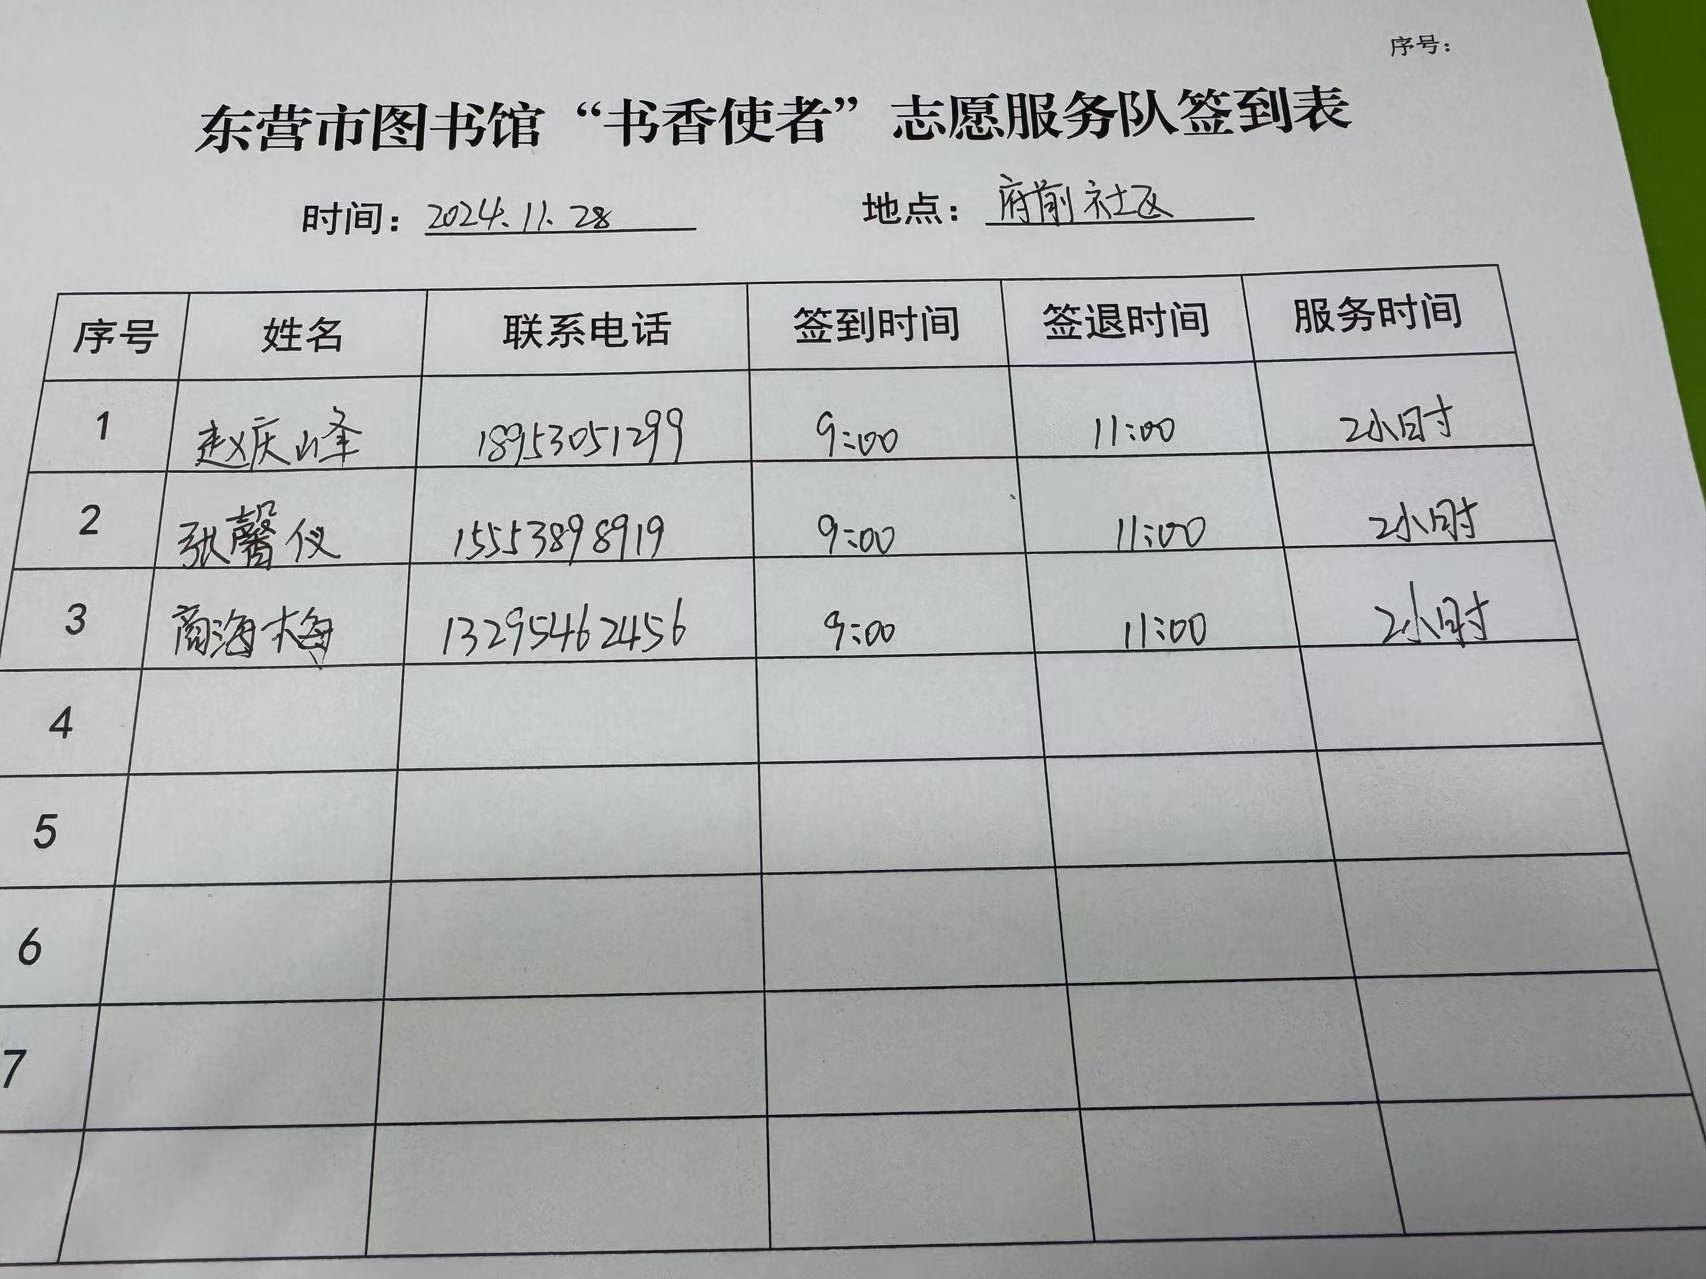 序号：
东营市图书馆“书香使者”志愿服务队签到表
时间：2024.11.28 地点：府前社区
序号 姓名 联系电话 签到时间 签退时间 服务时间
1 赵庆峰 18953051299 9:00 11:00 2小时
2 张馨仪 15553898919 9:00 11:00 2小时
3 商海梅 13295462456 9:00 11:00 2小时
4
5
6
7